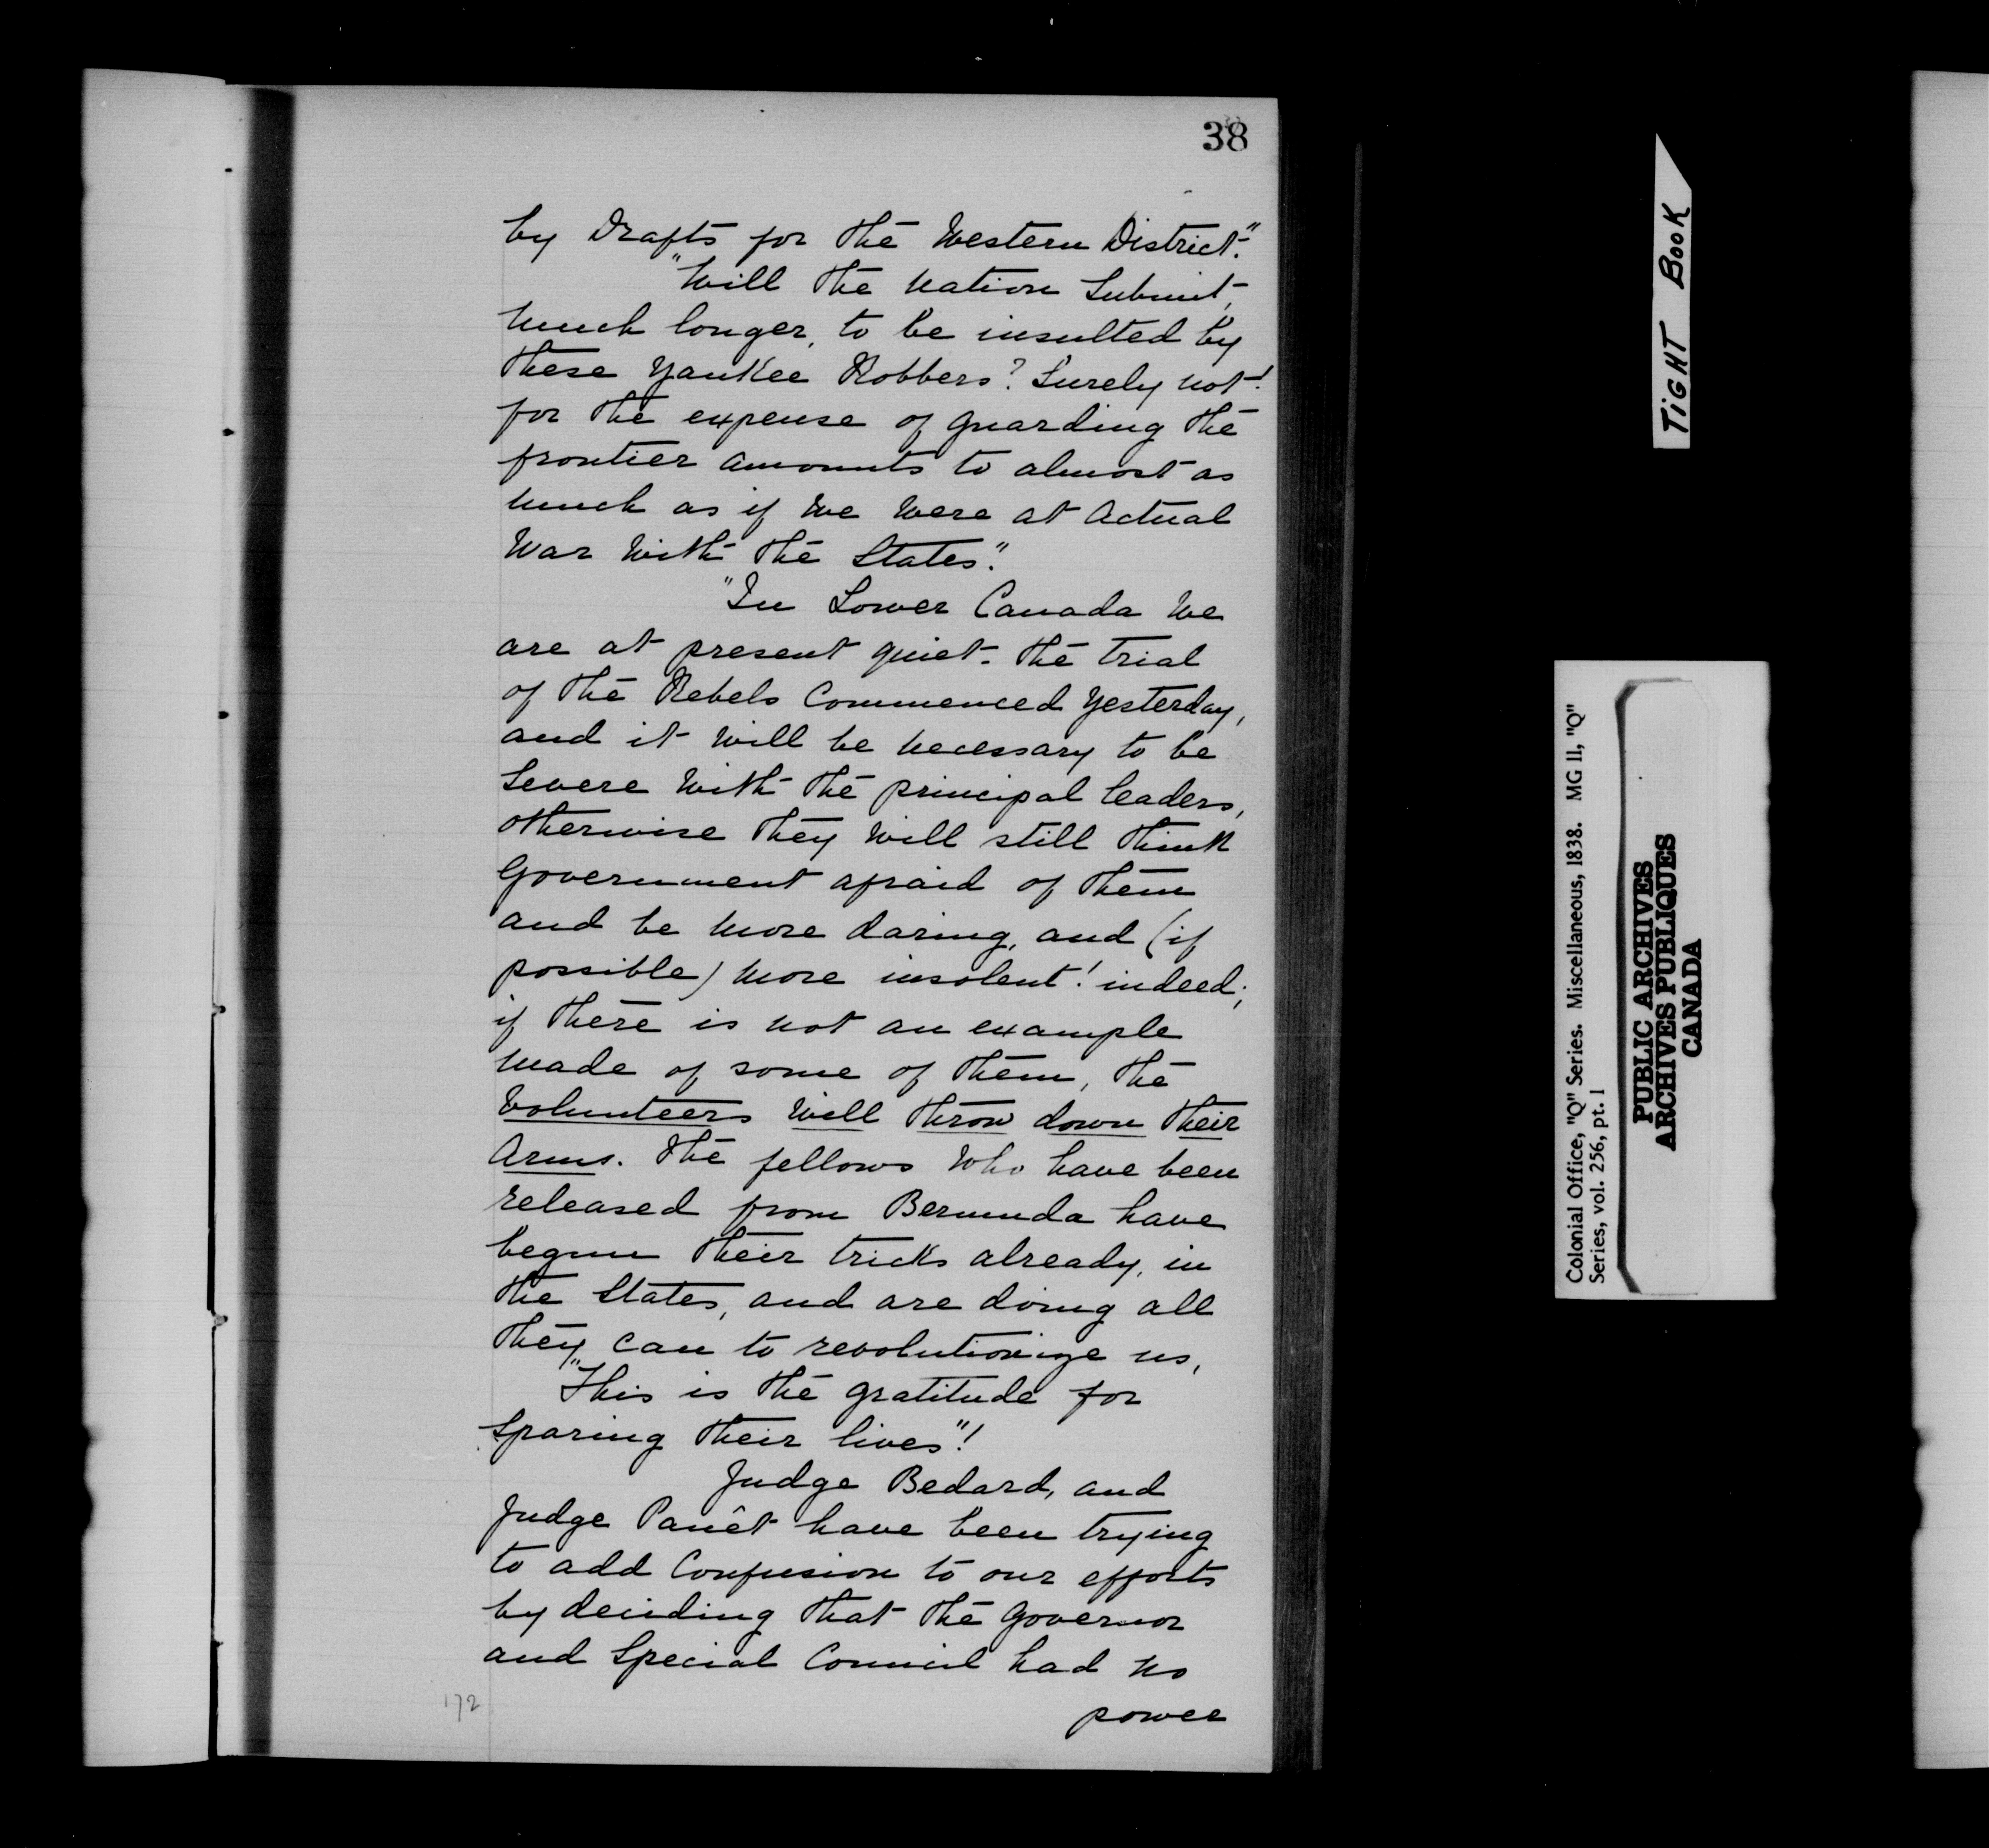 38
by Drafts for the Western District."
"Will the Nation Submit,
much longer, to be insulted by
these Yankee Robbers? Surely not!
for the expense of guarding the
frontier amounts to almost as
much as if we were at actual
War with the States."
"In Lower Canada we
are at present quiet. The trial
of the Rebels Commenced yesterday,
and it will be necessary to be
Severe with the principal leaders,
otherwise they will still think
Government afraid of them
and be more daring, and (if
possible) more insolent! indeed;
if there is not an example
made of some of them, the
Volunteers will throw down their
Arms. The fellows who have been
released from Bermuda have
begun their tricks already, in
the States, and are doing all
they can to revolutionize us,
"This is the gratitude for
Sparing their lives"!
Judge Bedard, and
Judge Panêt have been trying
to add Confusion to our efforts
by deciding that the Governor
and Special Council had no
power
172
TIGHT BOOK
Colonial Office, "Q" Series. Miscellaneous, 1838. MG 11, "Q"
Series, vol. 256, pt. 1
PUBLIC ARCHIVES
ARCHIVES PUBLIQUES
CANADA